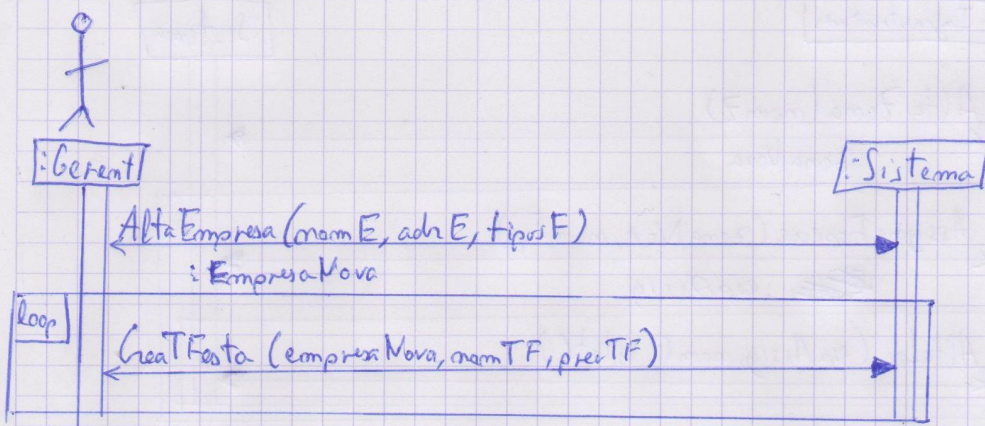 :Gerent
:Sistema
AltaEmpresa (nomE, adrE, tipusF)
: EmpresaNova
loop
CreaTFesta (empresaNova, nomTF, preuTF)